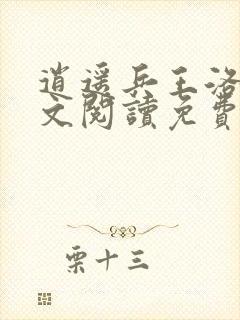 逍遥兵王洛
文閱讀免費
栗十三